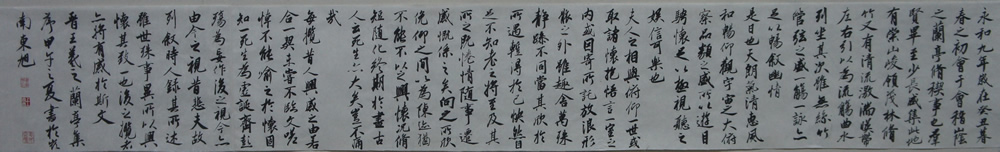 永和九年歲在癸丑暮
春之初會于會稽山陰
之蘭亭脩禊事也羣
賢畢至少長咸集此地
有崇山峻領茂林脩
竹又有清流激湍暎帶
左右引以為流觴曲水
列坐其次雖無絲竹
管弦之盛一觴一詠亦
足以暢敘幽情
是日也天朗氣清惠風
和暢仰觀宇宙之大俯
察品類之盛所以遊目
騁懷足以極視聽之
娛信可樂也
夫人之相與俯仰一世或
取諸懷抱悟言一室之
內或因寄所託放浪形
骸之外雖趣舍萬殊
靜躁不同當其欣於
所遇暫得於己快然自
足不知老之將至及其
所之既惓情隨事遷
感慨係之矣向之所欣
俛仰之間以為陳迹猶
不能不以之興懷況脩
短隨化終期於盡古
人云死生亦大矣豈不痛
哉
每攬昔人興感之由若
合一契未嘗不臨文嗟
悼不能喻之於懷固
知一死生為虛誕齊彭
殤為妄作後之視今亦
由今之視昔悲夫故
列敘時人錄其所述
雖世殊事異所以興
懷其致一也後之攬者
亦將有感於斯文
晉王羲之蘭亭集
序之夏書於
南東旭